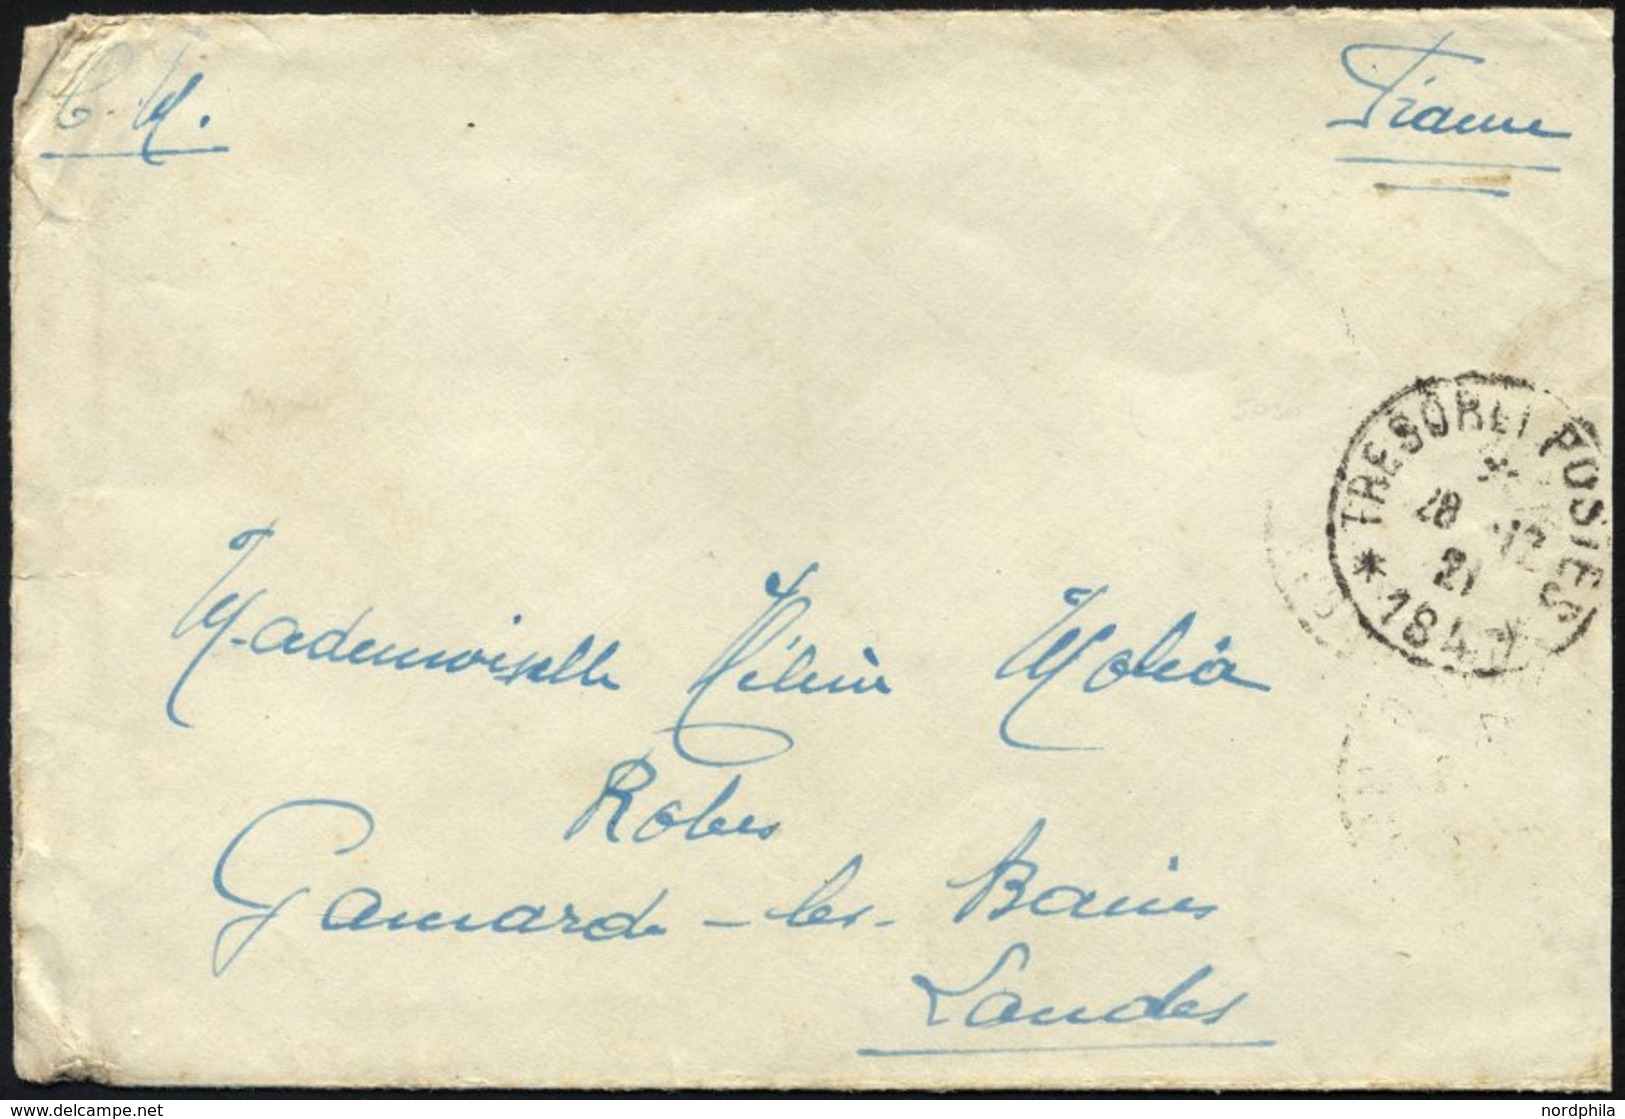 C. M.
France
TRESOR ET POSTES
28 -12
21
* 184
Mademoiselle Hélène
Robes
Gamarde-les-Bains
Landes
www.delcampe.net
nordphila